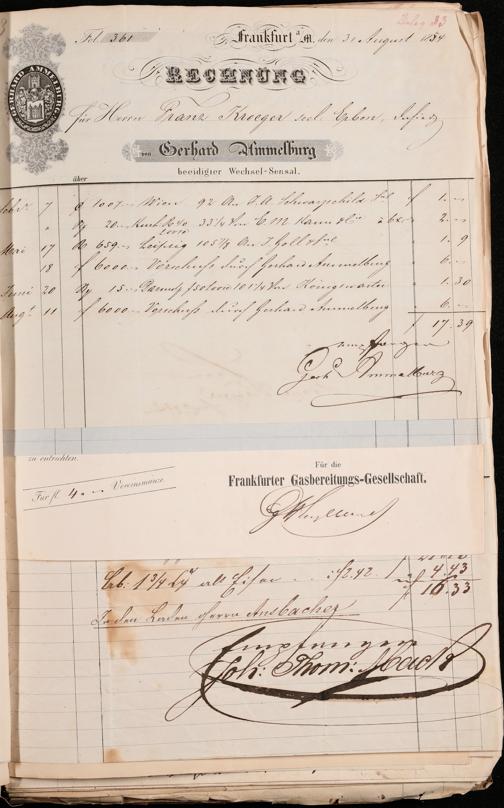 Beleg 33
Fol. 361
Frankfurt a/M. den 31 August 1854
GERHARD AMMELBURG
RECHNUNG
für Herrn Franz Kroeger seel. Erben,
von Gerhard Ammelburg
beeidigter Wechsel-Sensal.
über
7 1007.— Wien 92 An J. A. Schwarzschild f 1. —
20 — Kurh. 33 1/4 Von C. M. 2. —
Mai 17 659 — Leipzig 105 7/8 An 1. 9
18 f 6000 — Vorschuss durch Gerhard Ammelburg 6. —
Juni 20 15 — 101 1/4 Von Königswarter 1. 30
Augt. 11 f 6000 — Vorschuss durch Gerhard Ammelburg 6. —
f 17. 39
empfangen
Gerhd Ammelburg
zu entrichten.
Für fl. 4. — Vereinsmünze.
Für die
Frankfurter Gasbereitungs-Gesellschaft.
1 3/4 alt Eisen f 2.42 4. 43
f 16. 33
In den Laden Herrn Ansbacher
Empfangen
Joh: Thom: Mack